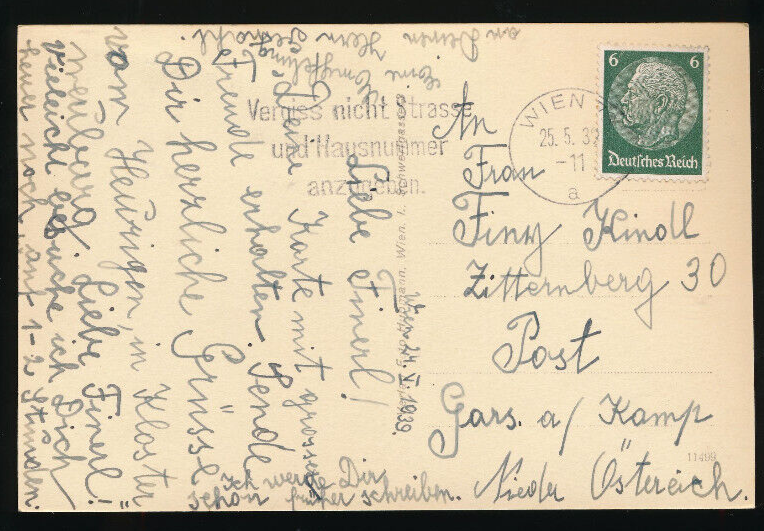 Wien 24. V. 1939.
Liebe Finerl!
Deine Karte mit grosser
Freude erhalten. Sende
Dir herzliche Grüsse
vom Heurigen, in Kloster
neuburg. Liebe Finerl!
vieleicht besuche ich Dich
heuer noch, auf 1-2 Stunden.
Ich werde Dir
schon früher schreiben.
Eine Empfehlung
an Deinen Hern Gemahl.
Vergiss nicht Strasse
und Hausnummer
anzugeben.
WIEN
25. 5. 39
-11
a
6 6
Deutsches Reich
An
Frau
Finy Kindl
Zitternberg 30
Post
Gars. a/ Kamp
Nieder Östereich.
Wien, I. Schwertgasse
11499